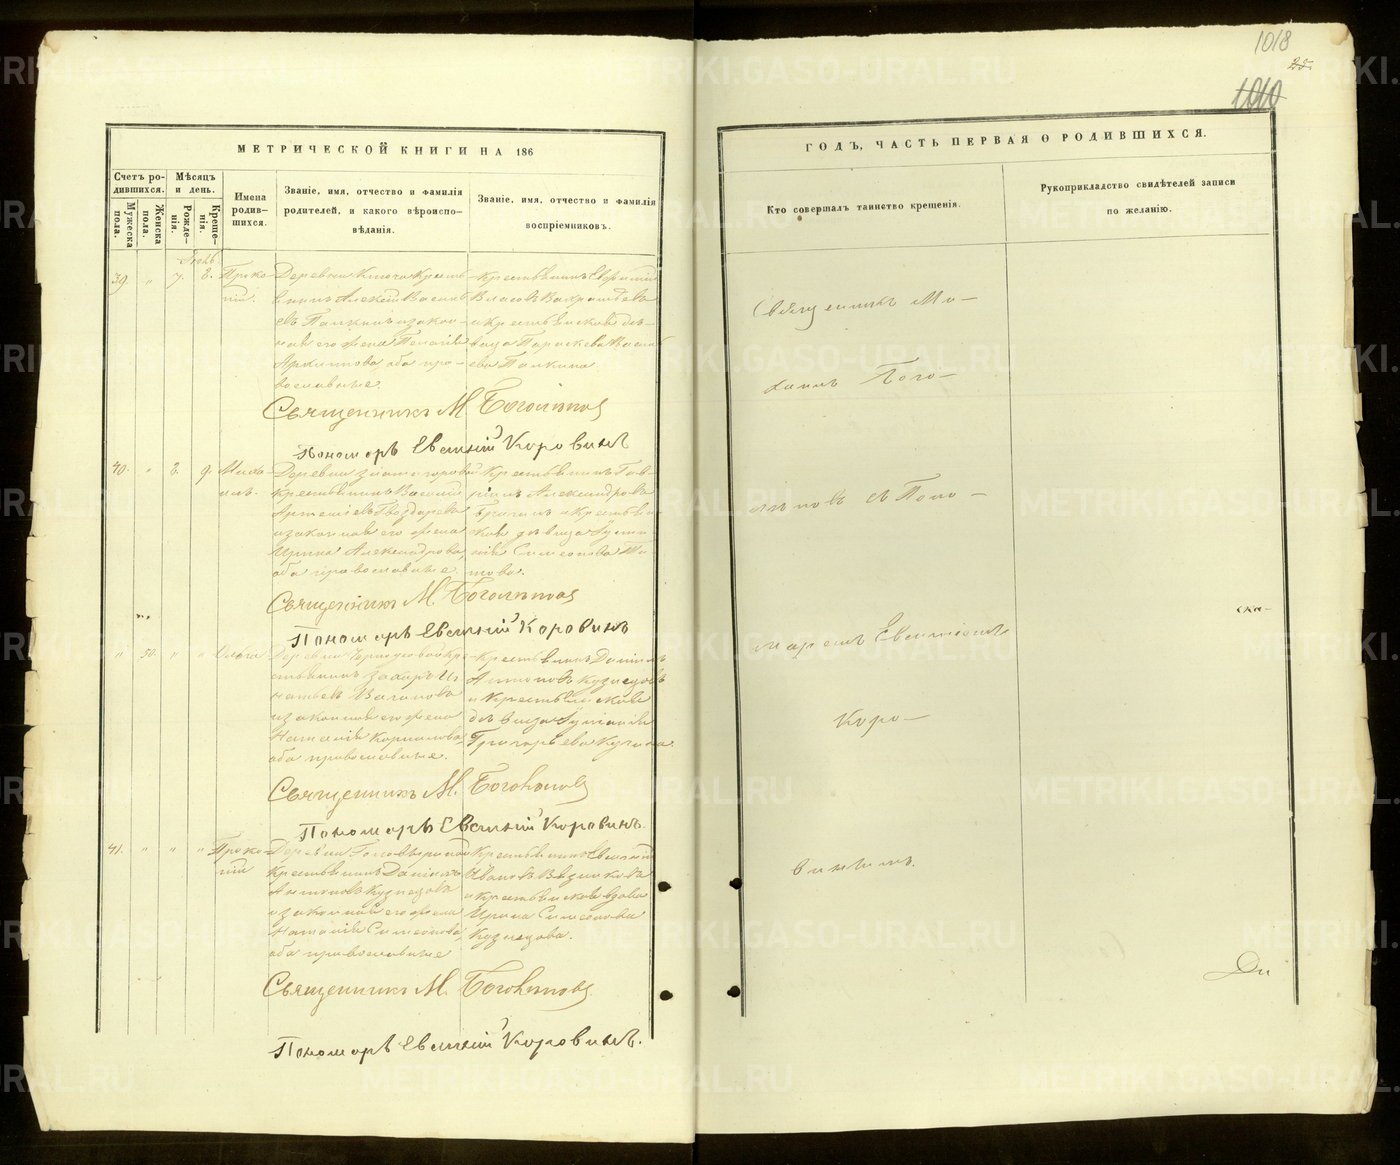 1018
28.
1010
МЕТРИЧЕСКОЙ КНИГИ НА 186
Счетъ родившихся.
Мужеска пола.
Женска пола.
Мѣсяцъ и день.
Рожденія.
Крещенія.
Имена родившихся.
Званіе, имя, отчество и фамилія
родителей, и какого вѣроиспо-
вѣданія.
Званіе, имя, отчество и фамилія
воспріемниковъ.
Іюль.
39. " 7. 8. Проко-
пій.
Деревни Ключа Кресть-
янинъ Алексѣй Василь-
евъ Палкинъ и закон-
ная его жена Пелагія
Архипова, оба пра-
вославные.
Крестьянинъ
Власовъ
и крестьянская дѣ-
вица Параскева Василь-
ева Палкина
Священникъ М. Боголѣповъ
Пономарь Евѳимій Коровинъ
40. " 8. 9. Миха-
илъ.
Деревни
крестьянинъ Василій
Артемьевъ
и законная его жена
Ирина Александрова,
оба православные.
Крестьянинъ Гав-
ріилъ Александровъ
и крестьян-
ская дѣвица
Симеонова Ти-
това.
Священникъ М. Боголѣповъ
Пономарь Евѳимій Коровинъ
" 30. " " Ольга
Деревни Черноусовой Кре-
стьянинъ
и законная его жена
Наталія Корнилова,
оба православные.
Крестьянинъ Даніилъ
Антоновъ Кузнецовъ
и крестьянская
дѣвица
Григорьева
Священникъ М. Боголѣповъ
Пономарь Евѳимій Коровинъ.
41. " " " Проко-
пій
Деревни
Крестьянинъ Даніилъ
Антоновъ Кузнецовъ
и законная его жена
Наталія Симеонова,
оба православные
Крестьянинъ Евѳимій
Ивановъ
и крестьянская вдова
Ирина Симеонова
Кузнецова.
Священникъ М. Боголѣповъ
Пономарь Евѳимій Коровинъ.
ГОДЪ, ЧАСТЬ ПЕРВАЯ О РОДИВШИХСЯ.
Кто совершалъ таинство крещенія.
Рукоприкладство свидѣтелей записи
по желанію.
Священникъ Ми-
хаилъ Бого-
лѣповъ съ Поно-
маремъ Евѳиміемъ
Коро-
винымъ.
ска-
Ди
METRIKI.GASO-URAL.RU